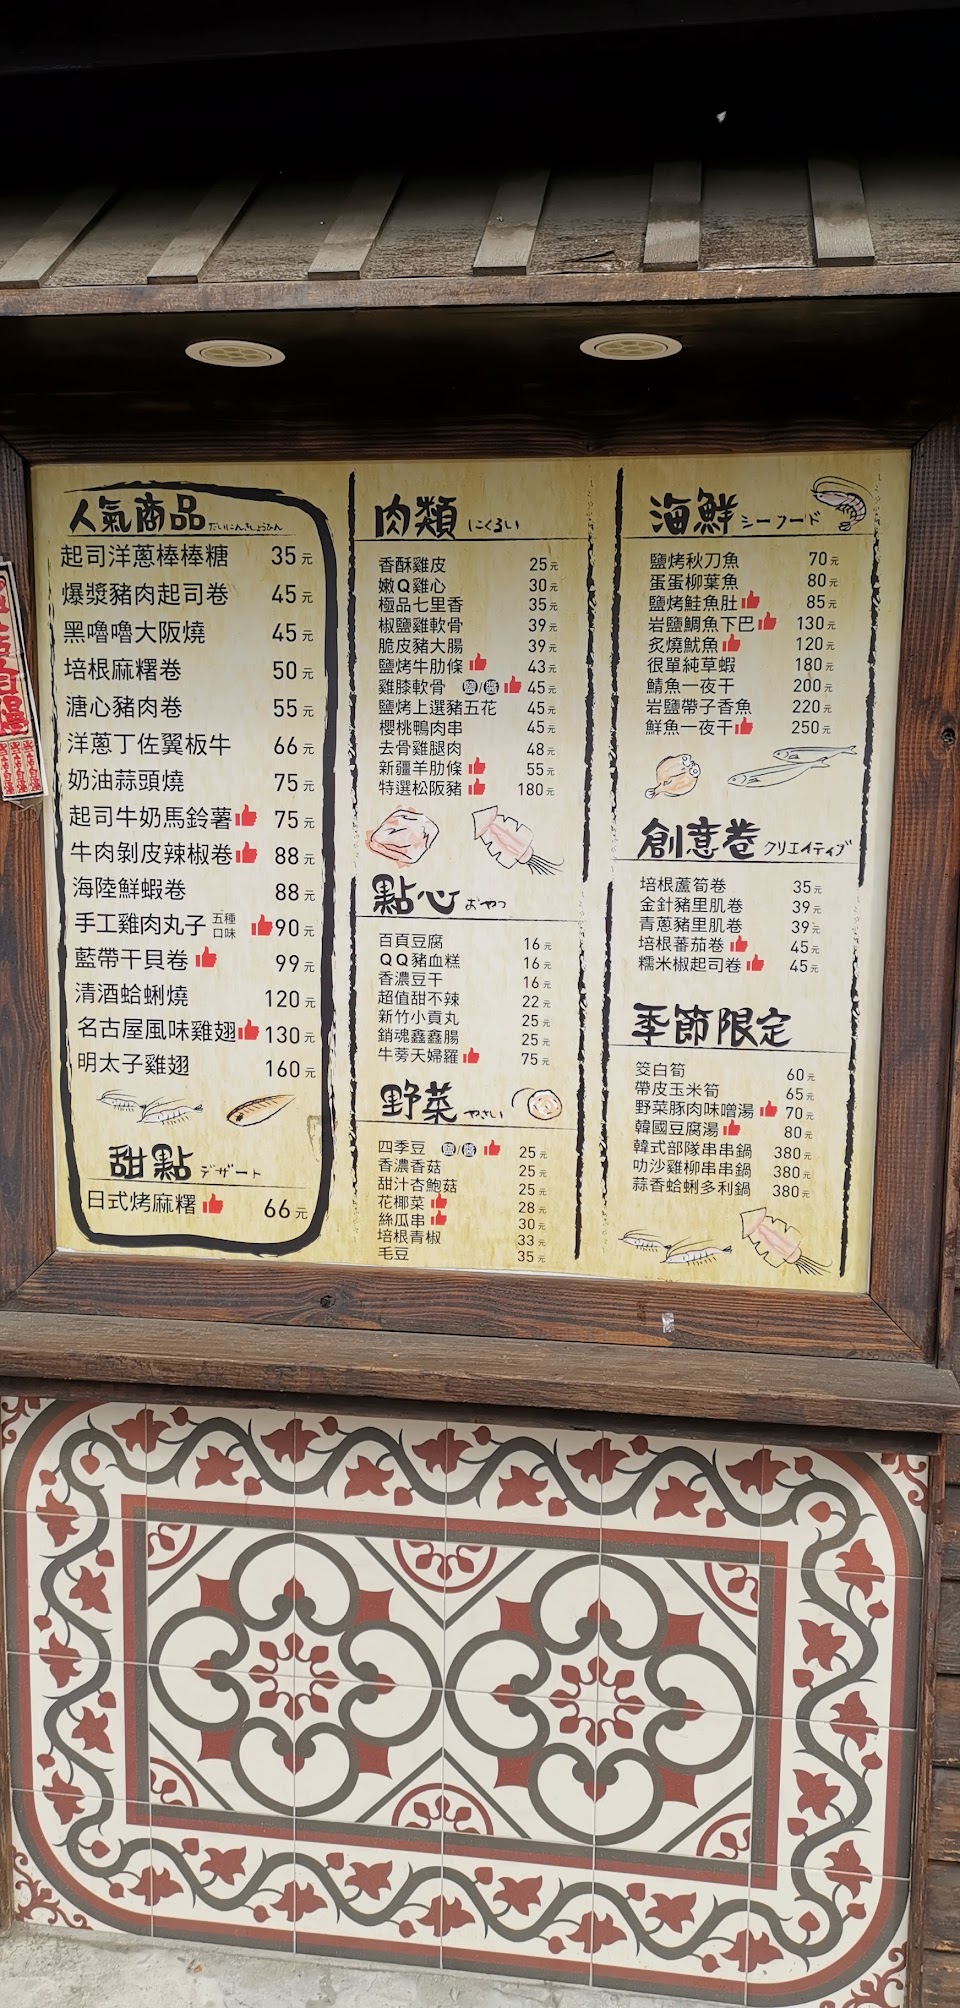 人氣商品 だいにんきしょうひん
起司洋蔥棒棒糖 35元
爆漿豬肉起司卷 45元
黑嚕嚕大阪燒 45元
培根麻糬卷 50元
溏心豬肉卷 55元
洋蔥丁佐翼板牛 66元
奶油蒜頭燒 75元
起司牛奶馬鈴薯 75元
牛肉剝皮辣椒卷 88元
海陸鮮蝦卷 88元
手工雞肉丸子 五種口味 90元
藍帶干貝卷 99元
清酒蛤蜊燒 120元
名古屋風味雞翅 130元
明太子雞翅 160元
甜點 デザート
日式烤麻糬 66元
肉類 にくるい
香酥雞皮 25元
嫩Q雞心 30元
極品七里香 35元
椒鹽雞軟骨 39元
脆皮豬大腸 39元
鹽烤牛肋條 43元
雞膝軟骨 鹽/醬 45元
鹽烤上選豬五花 45元
櫻桃鴨肉串 45元
去骨雞腿肉 48元
新疆羊肋條 55元
特選松阪豬 180元
點心 おやつ
百頁豆腐 16元
QQ豬血糕 16元
香濃豆干 16元
超值甜不辣 22元
新竹小貢丸 25元
銷魂鑫鑫腸 25元
牛蒡天婦羅 75元
野菜 やさい
四季豆 鹽/醬 25元
香濃香菇 25元
甜汁杏鮑菇 25元
花椰菜 28元
絲瓜串 30元
培根青椒 33元
毛豆 35元
海鮮 シーフード
鹽烤秋刀魚 70元
蛋蛋柳葉魚 80元
鹽烤鮭魚肚 85元
岩鹽鯛魚下巴 130元
炙燒魷魚 120元
很單純草蝦 180元
鯖魚一夜干 200元
岩鹽帶子香魚 220元
鮮魚一夜干 250元
創意卷 クリエイティブ
培根蘆筍卷 35元
金針豬里肌卷 39元
青蔥豬里肌卷 39元
培根蕃茄卷 45元
糯米椒起司卷 45元
季節限定
筊白筍 60元
帶皮玉米筍 65元
野菜豚肉味噌湯 70元
韓國豆腐湯 80元
韓式部隊串串鍋 380元
叻沙雞柳串串鍋 380元
蒜香蛤蜊多利鍋 380元